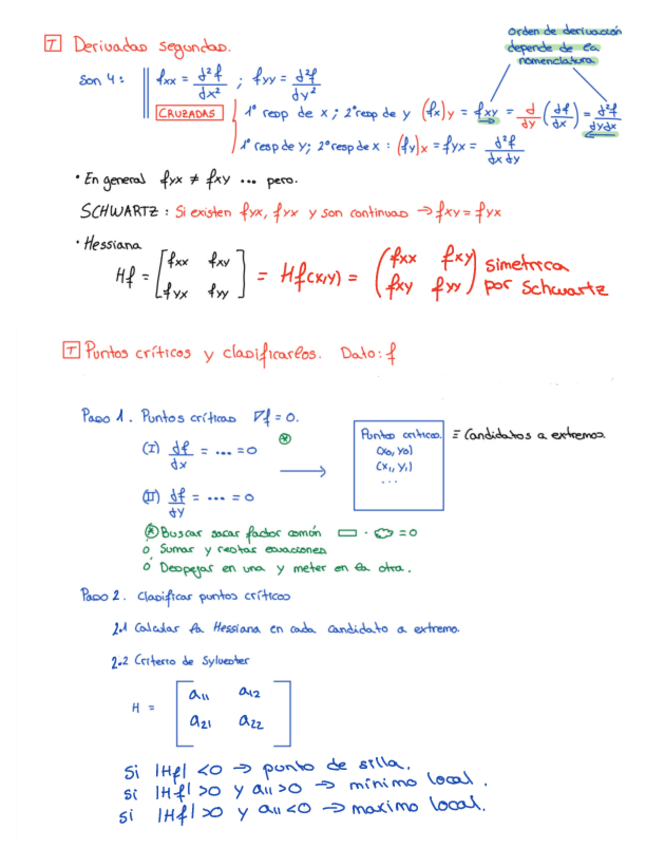 Orden de derivación
depende de la
nomenclatura.
T Derivadas segundas.
Son 4: fxx = d²f/dx² ; fyy = d²f/dy²
CRUZADAS 1º resp de x ; 2º resp de y (fx)y = fxy = d/dy (df/dx) = d²f/dydx
1º resp de y; 2º resp de x : (fy)x = fyx = d²f/dx dy
• En general fyx ≠ fxy ... pero.
SCHWARTZ : Si existen fyx, fyx y son continuas → fxy = fyx
• Hessiana
Hf = [fxx fxy
fyx fyy] = Hf(x,y) = (fxx fxy
fxy fyy) simetrica
por Schwartz
T Puntos críticos y clasificarlos. Dato: f
Paso 1. Puntos críticos ∇f = 0.
(I) df/dx = ... = 0 *
(II) df/dy = ... = 0
Puntos críticos.
(x₀, y₀)
(x₁, y₁)
...
≡ Candidatos a extremos.
* Buscar sacar factor común ▭ · ☁ = 0
ó Sumar y restar ecuaciones
ó Despejar en una y meter en la otra.
Paso 2. Clasificar puntos críticos
2.1 Calcular la Hessiana en cada candidato a extremo.
2.2 Criterio de Sylvester
H = [a₁₁ a₁₂
a₂₁ a₂₂]
Si |Hf| <0 → punto de silla.
si |Hf| >0 y a₁₁ >0 → mínimo local.
si |Hf| >0 y a₁₁ <0 → maximo local.